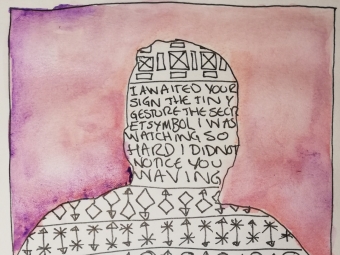 I AWAITED YOUR
SIGN THE TINY
GESTURE THE SECR
ET SYMBOL I WAS
WATCHING SO
HARD I DID NOT
NOTICE YOU
WAVING